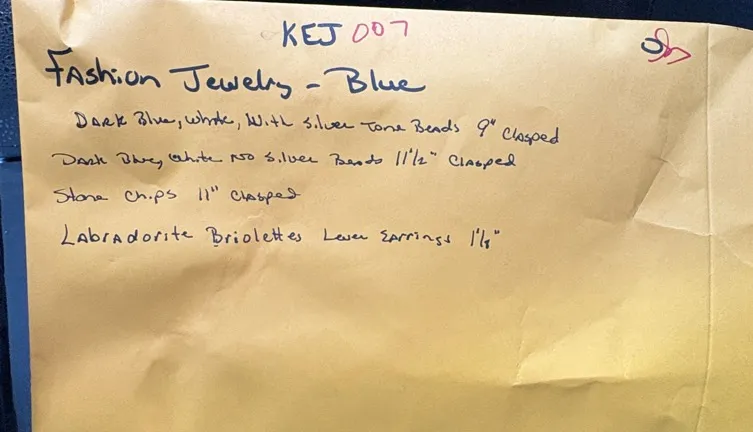 KEJ 007
Fashion Jewelry - Blue
Dark Blue, White, With Silver Tone Beads 9" Clasped
Dark Blue, White No Silver Beads 11 1/2" Clasped
Stone Chips 11" Clasped
Labradorite Briolettes Lever Earrings 1 1/8"